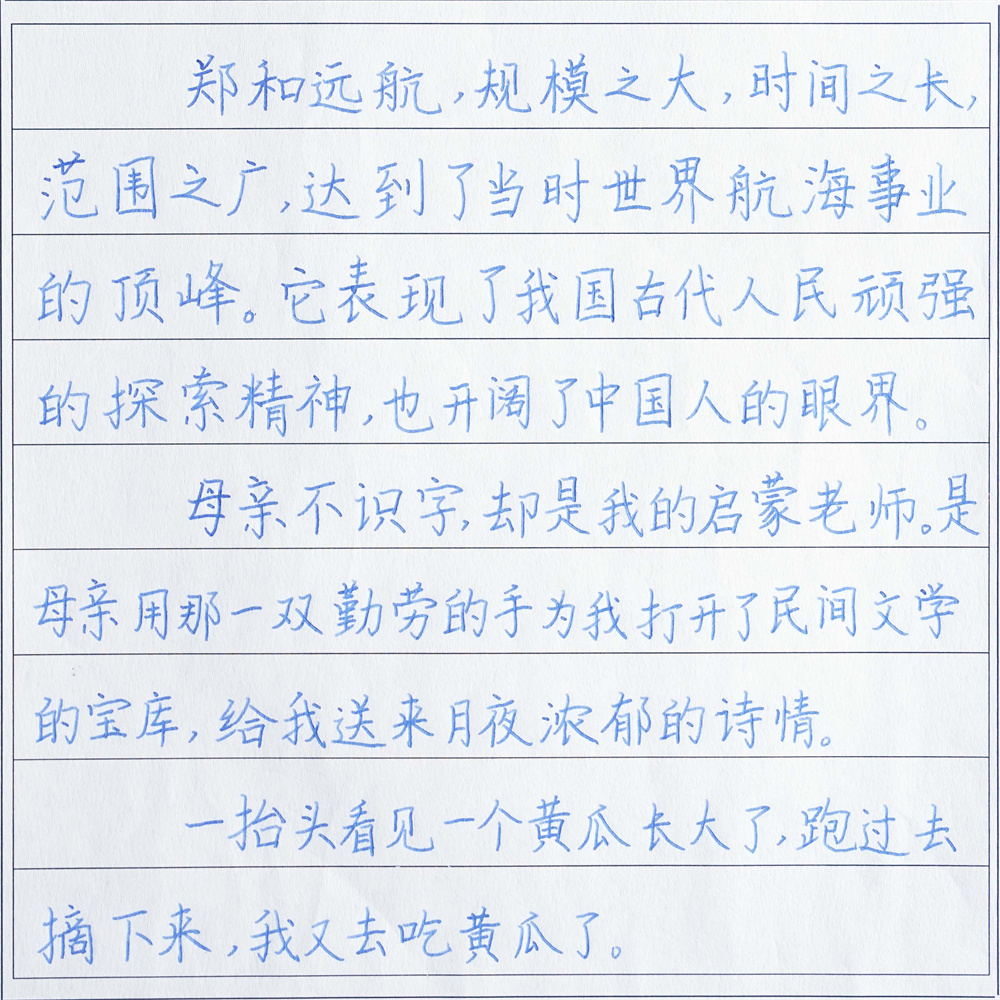 郑和远航,规模之大,时间之长,
范围之广,达到了当时世界航海事业
的顶峰。它表现了我国古代人民顽强
的探索精神,也开阔了中国人的眼界。
母亲不识字,却是我的启蒙老师。是
母亲用那一双勤劳的手为我打开了民间文学
的宝库,给我送来月夜浓郁的诗情。
一抬头看见一个黄瓜长大了,跑过去
摘下来,我又去吃黄瓜了。